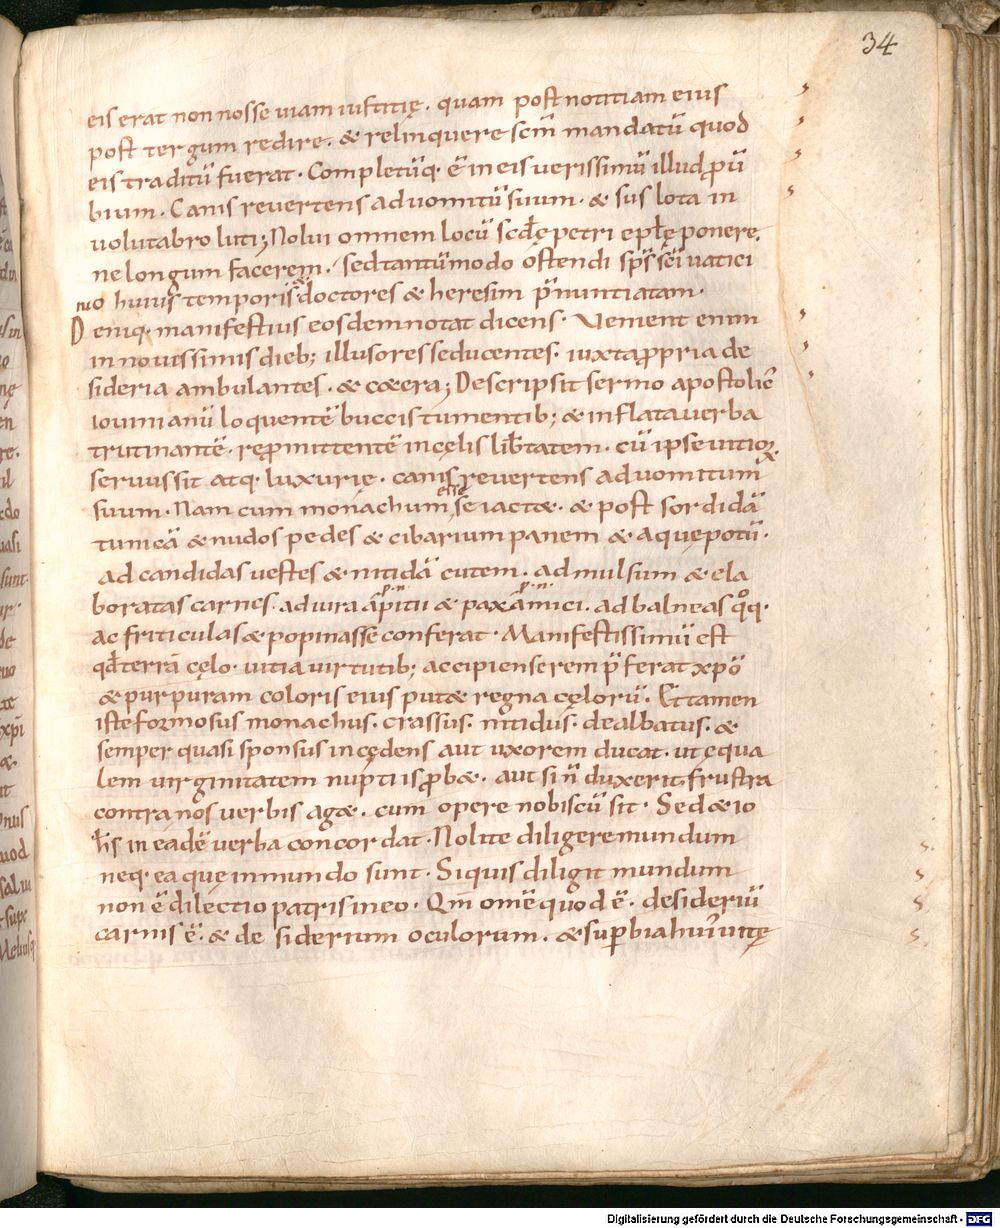 34
eis erat non nosse uiam iustitię. quam post notitiam eius
post tergum redire. & relinquere scm̄ mandatū quod
eis traditū fuerat. Completūq. ē in eis verissimū illud ꝓuū
bium. Canis revertens ad uomitū suum. & sus lota in
uolutabro luti; Nolui omnem locū scdę petri epłę ponere.
ne longum facerem. sed tantūmodo ostendi sp̄s sc̄i uatici
nio huius temporis & doctores & heresim p̄nuntiatam.
Deniq. manifestius eosdem notat dicens. Venient enim
in nouissimis dieb; illusores seducentes. iuxta ꝓpria de
sideria ambulantes. & cœtera; Descripsit sermo apostolic̄
iouinianū loquentē buccis tumentib; & inflata verba
trutinantē. repmittentē in cęlis lib̄tatem. cū ipse uitioꝝ
seruus sit atq. luxurię. canis revertens ad uomitum
suum. Nam cum monachum esse se iactæ. & post sordidā
tunicā & nudos pedes & cibarium panem & aquę potū.
ad candidas uestes & nitidā cutem. ad mulsum & ela
boratas carnes. ad iura apitii & paxamici. ad balneas qͦq.
ac friticulas & popinas se conferat. Manifestissimū est
qđ terrā cęlo. uitia uirtutib; accipienserem p̄ferat xp̄o
& purpuram coloris eius putæ regna cęlorū. Et tamen
iste formosus monachus. crassus. nitidus. dealbatus. &
semper quasi sponsus incędens aut uxorem ducat. ut ęqua
lem uirginitatem nuptiis ꝓbæ. aut si n̄ duxerit. frustra
contra nos verbis agæ. cum opere nobiscū sit. Sed & io
h̄is in eadē verba concordat. Nolite diligere mundum
neq. ea quę in mundo sunt. Siquis diligit mundum
non ē dilectio patris in eo. Qm̄ om̄e quod ē. desideriū
carnis ē. & desiderium oculorum. & supbia hui᾽ uitę
Digitalisierung gefördert durch die Deutsche Forschungsgemeinschaft - DFG